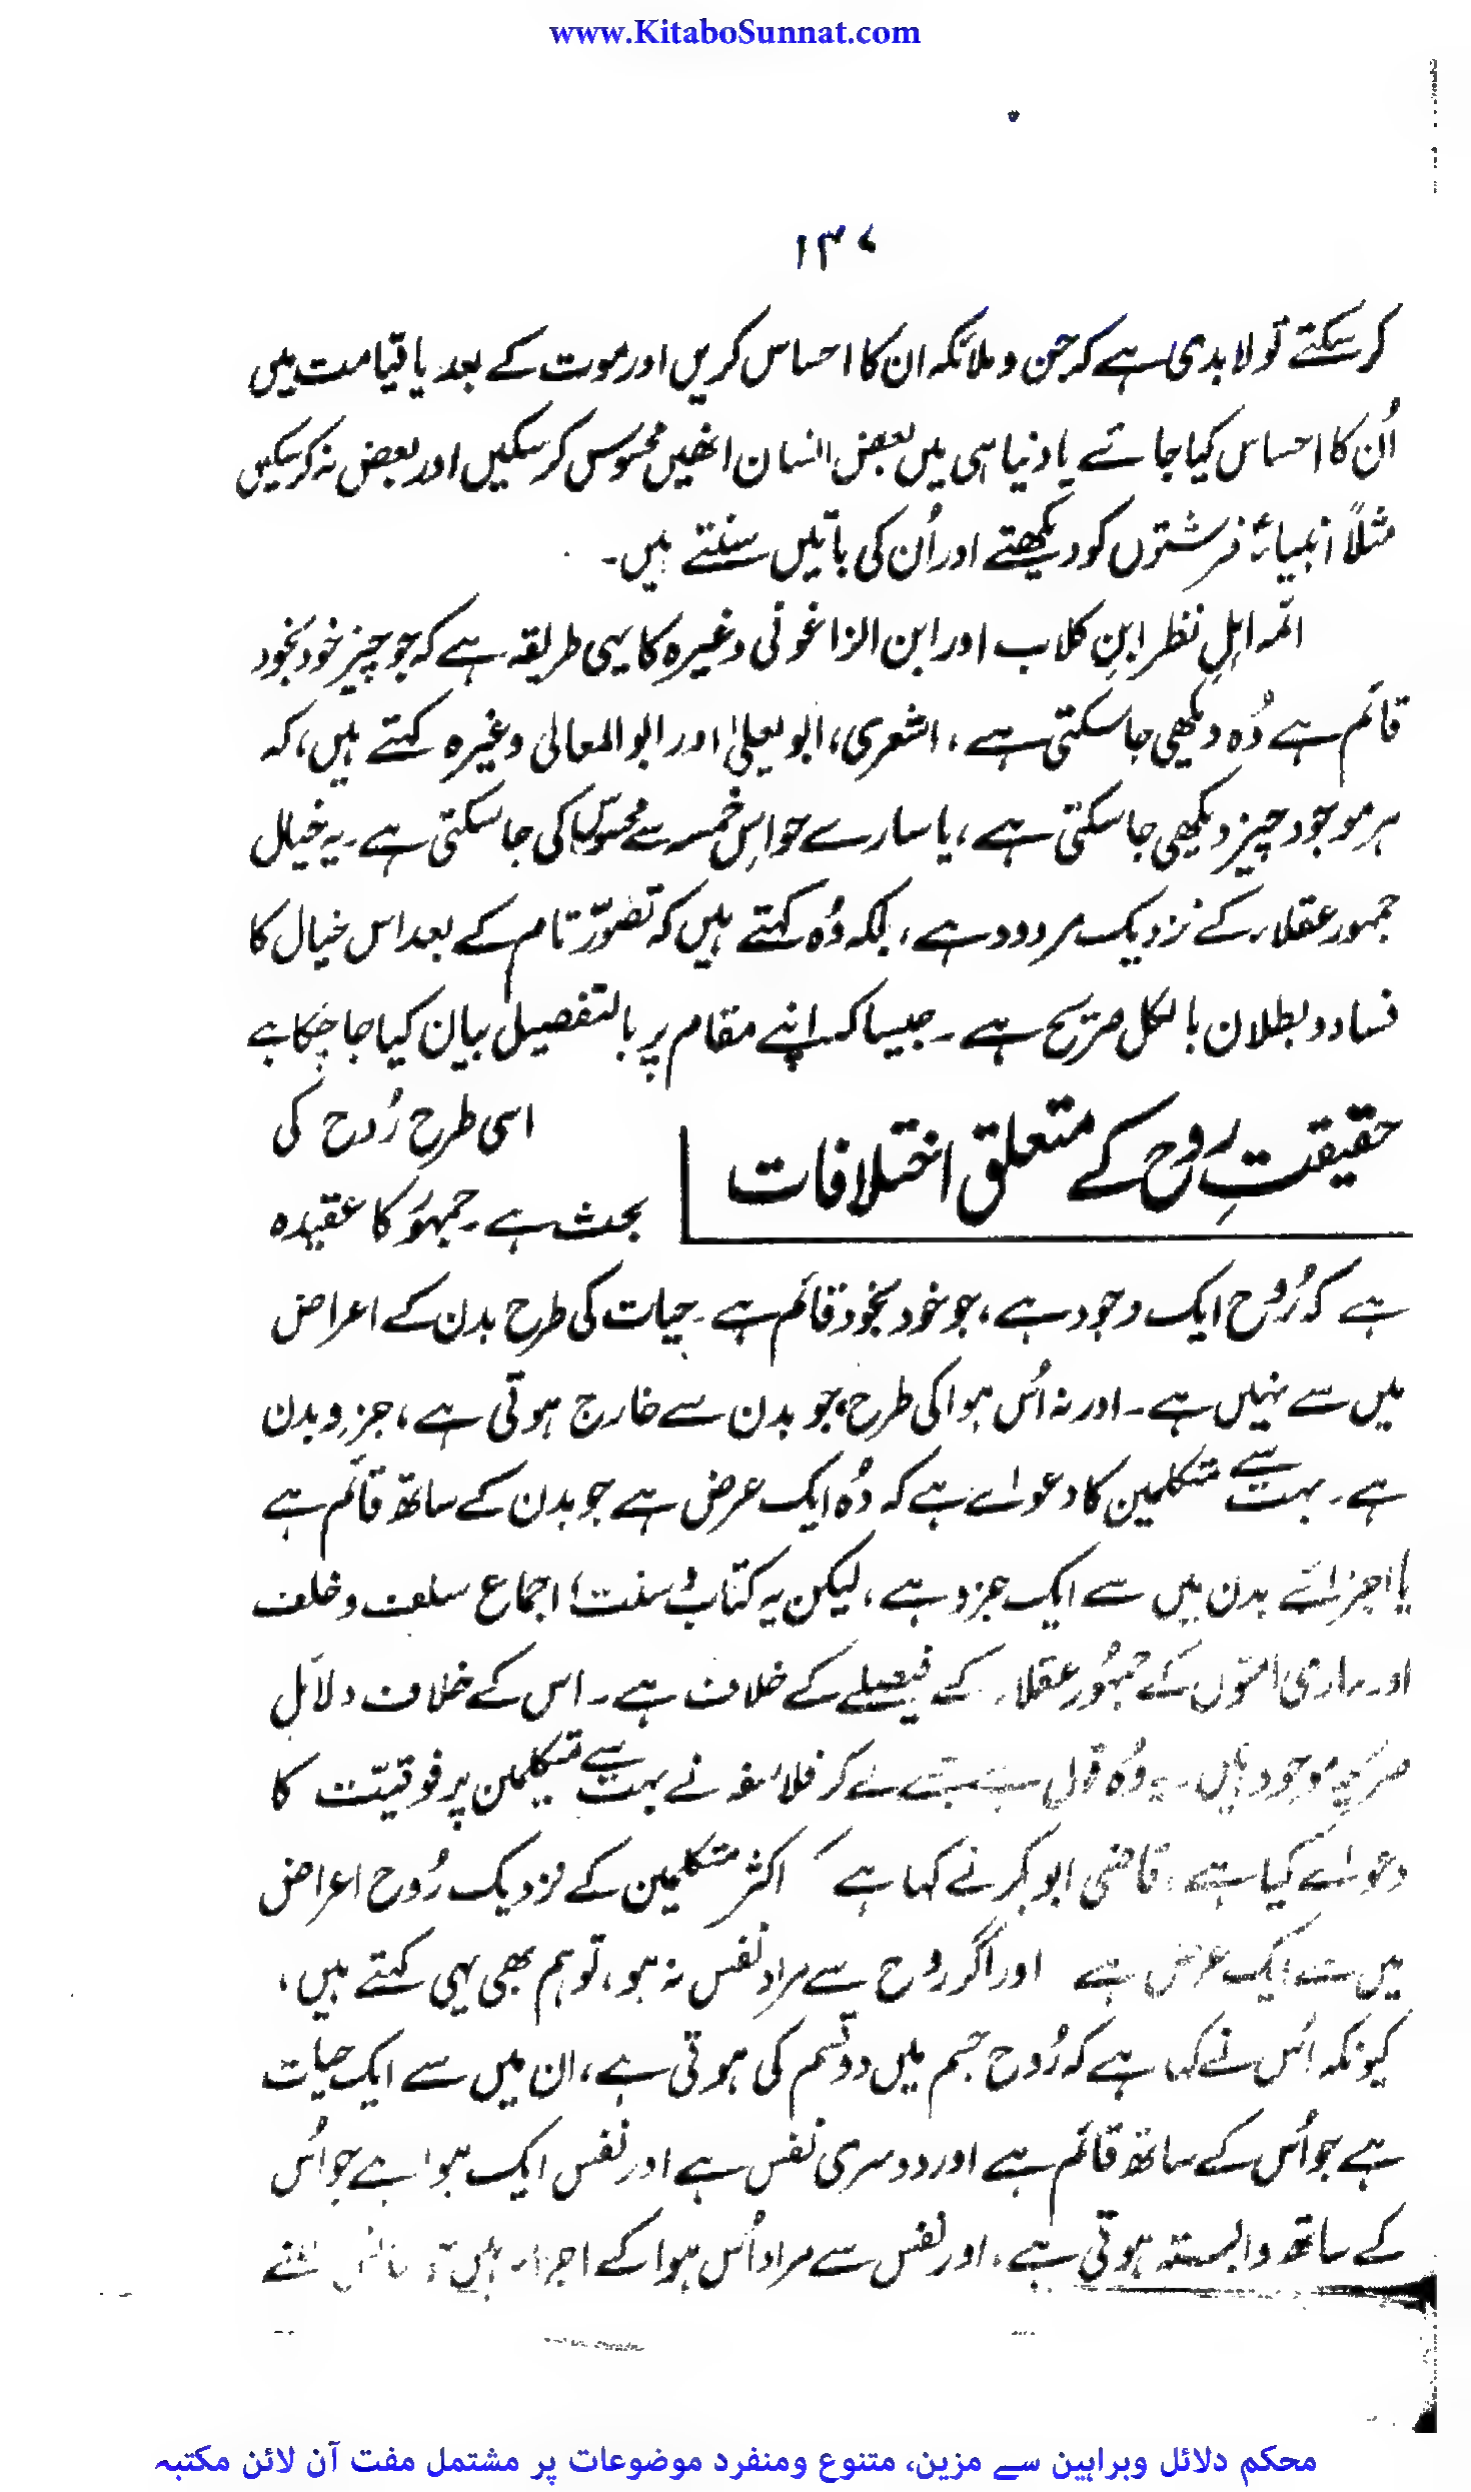 www.KitaboSunnat.com
۱۳۷
کر سکتے تو لابدی ہے کہ جن و ملائکہ ان کا احساس کریں اور موت کے بعد یا قیامت میں
اُن کا احساس کیا جائے یا دنیا ہی میں بعض انسان انھیں محسوس کر سکیں اور بعض نہ کر سکیں
مثلاً انبیاءؑ فرشتوں کو دیکھتے اور اُن کی باتیں سنتے ہیں۔
ائمہ اہلِ نظر ابنِ کلاب اور ابن الزاغونی وغیرہ کا یہی طریقہ ہے کہ جو چیز خود بخود
قائم ہے وُہ دیکھی جا سکتی ہے، اشعری، ابو یعلیٰ اور ابو المعالی وغیرہ کہتے ہیں، کہ
ہر موجود چیز دیکھی جا سکتی ہے، یا سارے حواسِ خمسہ سے محسوس کی جا سکتی ہے۔ یہ خیال
جمہور عقلاء کے نزدیک مردود ہے، بلکہ وُہ کہتے ہیں کہ تصوّر تام کے بعد اس خیال کا
فساد و بطلان بالکل صریح ہے۔ جیسا کہ اپنے مقام پر بالتفصیل بیان کیا جا چکا ہے
حقیقتِ روح کے متعلق اختلافات
اسی طرح رُوح کی
بحث ہے۔ جمہوُر کا عقیدہ
ہے کہ رُوح ایک وجود ہے، جو خود بخود قائم ہے۔ حیات کی طرح بدن کے اعراض
میں سے نہیں ہے۔ اور نہ اُس ہوا کی طرح، جو بدن سے خارج ہوتی ہے، جزوِ بدن
ہے۔ بہت سے متکلمین کا دعواے ہے کہ وُہ ایک عرض ہے جو بدن کے ساتھ قائم ہے
یا اجزائے بدن میں سے ایک جزو ہے، لیکن یہ کتاب و سنت، اجماع سلف و خلف
اور ساری امتوں کے جمہُور عقلاء کے فیصلے کے خلاف ہے۔ اس کے خلاف دلائل
صریحہ موجود ہیں۔ یہ وُہ قول ہے جسے لے کر فلاسفہ نے بہت سے متکلمین پر فوقیّت کا
دعواے کیا ہے، قاضی ابو بکر نے کہا ہے "اکثر متکلمین کے نزدیک رُوح اعراض
میں سے ایک عرض ہے اور اگر روح سے مراد نفس نہ ہو، تو ہم بھی یہی کہتے ہیں،
کیونکہ اُس نے کہا ہے کہ رُوح جسم میں دو قسم کی ہوتی ہے، ان میں سے ایک حیات
ہے جو اُس کے ساتھ قائم ہے اور دوسری نفس ہے اور نفس ایک ہوا ہے جو اُس
کے ساتھ وابستہ ہوتی ہے، اور نفس سے مراد اُس ہوا کے اجزاء ہیں
محکم دلائل وبراہین سے مزین، متنوع ومنفرد موضوعات پر مشتمل مفت آن لائن مکتبہ